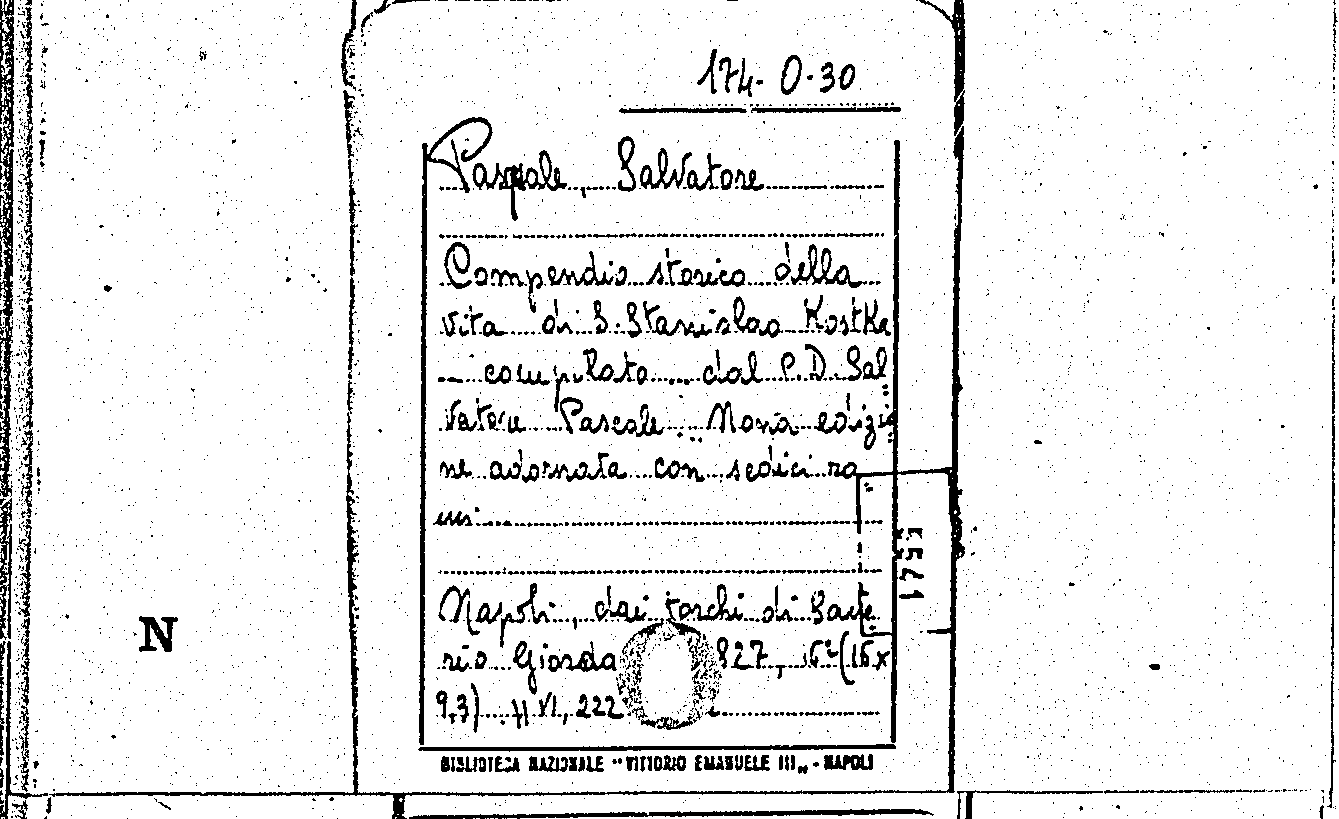 174-0-30
Pasquale, Salvatore
Compendio storico della
vita di S. Stanislao Kostka
... compilato ... dal P. D. Sal
vatore Pascale ... Nona edizio
ne adornata con sedici ra
mi ...
Napoli, dai torchi di Save
rio Giorda 827, 16° (15 x
9,3) pp VI, 222
BIBLIOTECA NAZIONALE "VITTORIO EMANUELE III" - NAPOLI
N